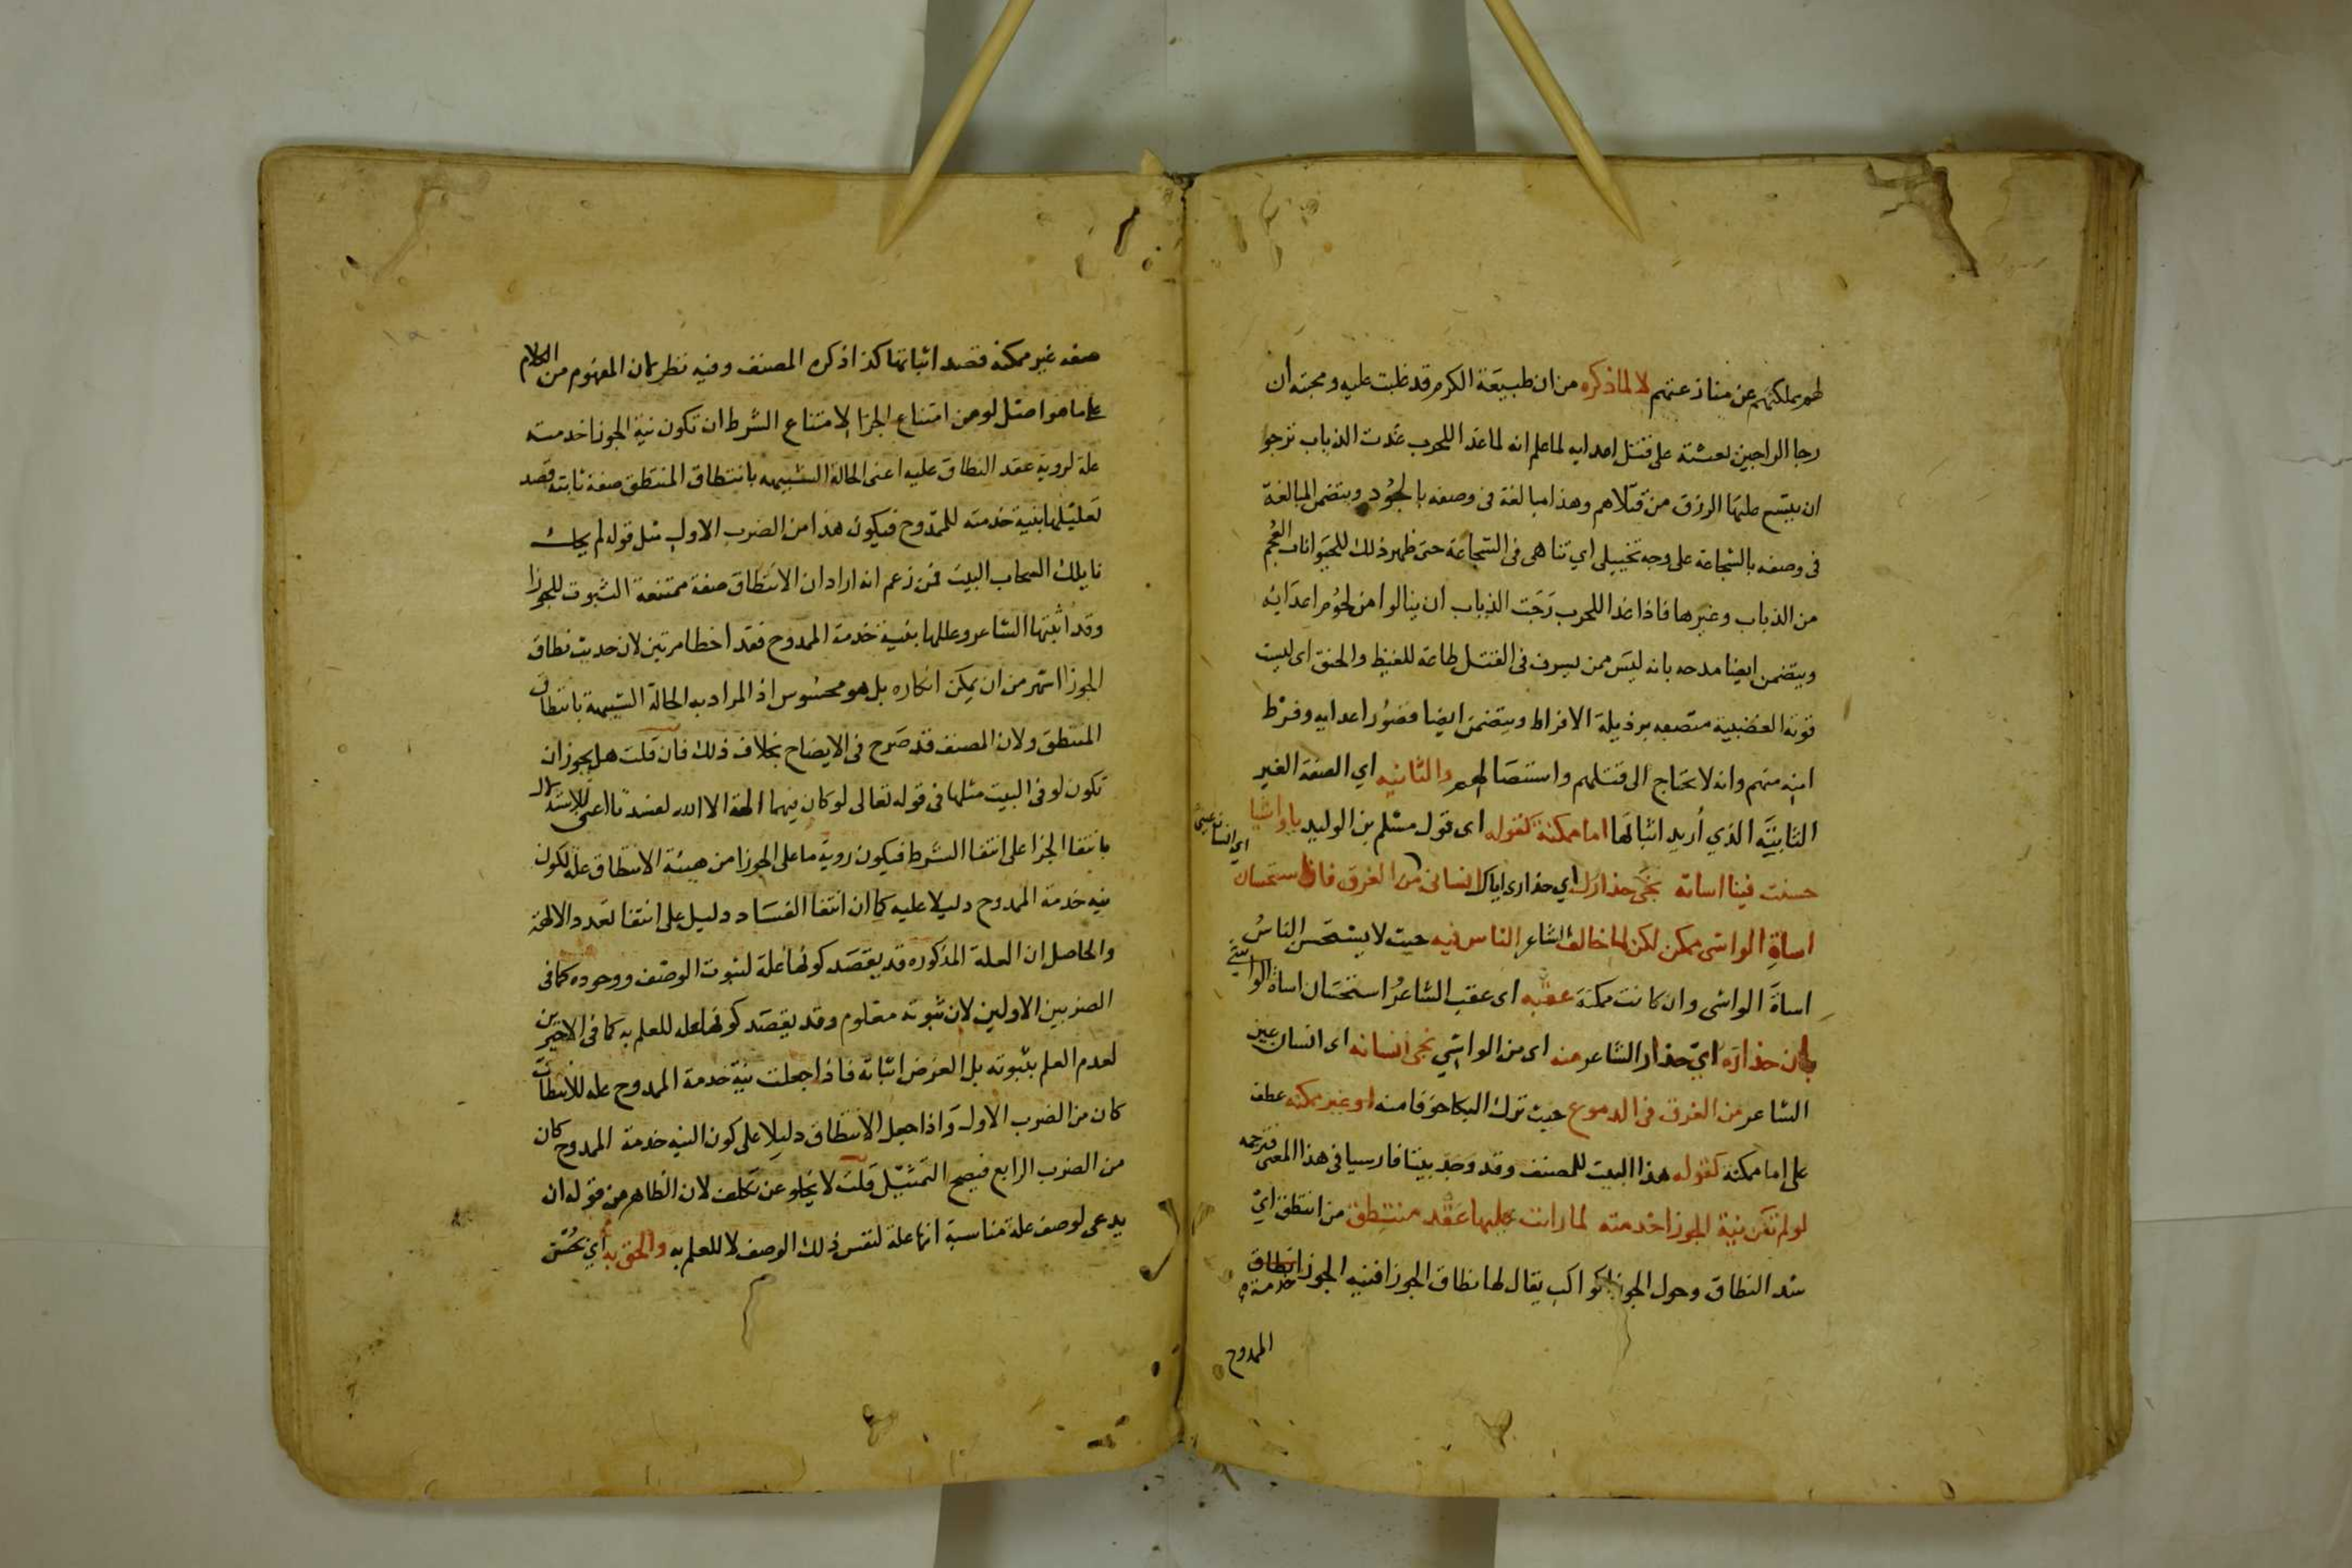 لهم بملكتهم عن منازعتهم لا لما ذكره من ان طبيعة الكرم قد غلبت عليه ومحبته ان
رجا الراجين بعثته على قتل اعدايه لما علم انه لما غدا للحرب غدت الذياب ترجو
ان يتسع عليها الرزق من قتلاهم وهذا مبالغة فى وصفه بالجود ويتضمن المبالغة
فى وصفه بالشجاعة على وجه تخييلى اي تناهى فى الشجاعة حتى ظهر ذلك للحيوانات العجم
من الذياب وغيرها فاذا غدا للحرب رجت الذياب ان ينالوا من لحوم اعدائه
ويتضمن ايضا مدحه بانه ليس ممن يسرف فى القتل طاعة للغيظ والحنق اى ليست
قوته الغضبية متصفه برذيلة الافراط ويتضمن ايضا قصور اعدايه وفرط
امنه منهم وانه لا يحتاج الى قتلهم واستئصالهم والثانيه اي الصفة الغير
الثابتة الذي أريد اثباتها اما ممكنة كقوله اى قول مسلم بن الوليد ياواشيا
حسنت فينا اساته نجى حذارك اي حذارى اياك انسانى من الغرق فان استحسان
اي انسان عينى
اساة الواشى ممكن لكن لما خالف الشاعر الناس فيه حيث لا يستحسن الناس
اساة الواشى وان كانت ممكنة عقبه اى عقب الشاعر استحسان اساة الواشى
بان حذاره اي حذار الشاعر منه اى من الواشي نجى انسانه اى انسان عين
الشاعر من الغرق فى الدموع حيث ترك البكا خوفا منه او غير ممكنه عطف
على اما ممكنة كقوله هذا البيت للمصنف وقد وجد بيتا فارسيا فى هذا المعنى فترجمه
لو لم تكن نية الجوزا خدمته لما رايت عليها عقد منتطق من انتطق اي
شد النطاق وحول الجوزا كواكب يقال لها نطاق الجوزا فنيه الجوزا خدمة
الممدوح
صفه غير ممكنه قصد اثباتها كذا ذكره المصنف وفيه نظر لان المفهوم من الكلام
على ما هو اصل لو من امتناع الجزا لامتناع الشرط ان تكون نية الجوزا خدمته
علة لروية عقد النطاق عليه اعنى الحالة الشبيهه بانتطاق المنتطق صفة ثابته قصد
تعليلها بنية خدمته للممدوح فيكون هذا من الضرب الاول مثل قوله لم يحك
نايلك السحاب البيت فمن زعم انه اراد ان الانتطاق صفة ممتنعة الثبوت للجوزا
وقد اثبتها الشاعر وعللها بنية خدمة الممدوح فقد اخطا مرتين لان حديث نطاق
الجوزا اشهر من ان يمكن انكاره بل هو محسوس اذ المراد به الحالة الشبيهة بانتطاق
المنتطق ولان المصنف قد صرح فى الايضاح بخلاف ذلك فان قلت هل يجوز ان
تكون لو فى البيت مثلها فى قوله تعالى لو كان فيهما الهة الا الله لفسدتا اعنى للاستدلال
بانتفا الجزا على انتفا الشرط فيكون روية ما على الجوزا من هيئة الانتطاق علة لكون
نيه خدمة الممدوح دليلا عليه كما ان انتفا الفساد دليل على انتفا تعدد الالهة
والحاصل ان العلة المذكوره قد يقصد كونها علة لثبوت الوصف ووجوده كما فى
الضربين الاولين لان ثبوته معلوم وقد يقصد كونها علة للعلم به كما فى الاخيرين
لعدم العلم بثبوته بل الغرض اثباته فاذا جعلت نية خدمة الممدوح علة للانتطاق
كان من الضرب الاول واذا جعل الانتطاق دليلا على كون النيه خدمة الممدوح كان
من الضرب الرابع فيصح التمثيل قلت لا يخلو عن تكلف لان الظاهر من قوله ان
يدعى لوصف علة مناسبة انها علة لنفس ذلك الوصف لا للعلم به والحق به اي بحسن